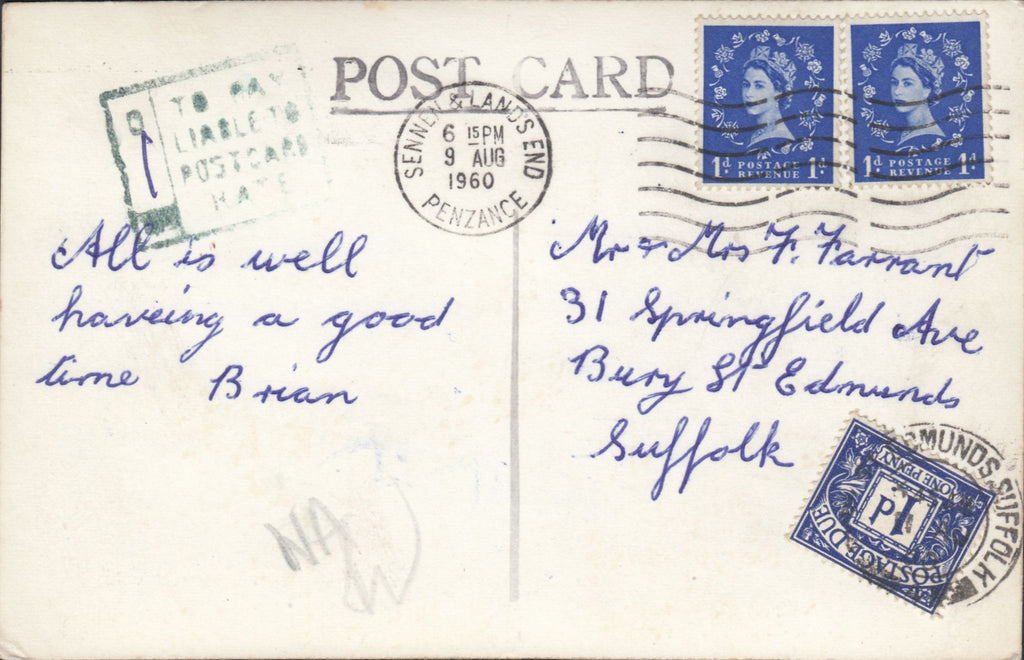 POST CARD
1D
1
TO PAY
LIABLE TO
POSTCARD
RATE
SENNEN & LANDS END
6 15PM
9 AUG
1960
PENZANCE
1d POSTAGE REVENUE 1d
1d POSTAGE REVENUE 1d
All is well
haveing a good
time Brian
Mr & Mrs F. Farrant
31 Springfield Ave
Bury St Edmunds
Suffolk
NA
EDMUNDS SUFFOLK
ONE PENNY
1d
POSTAGE DUE